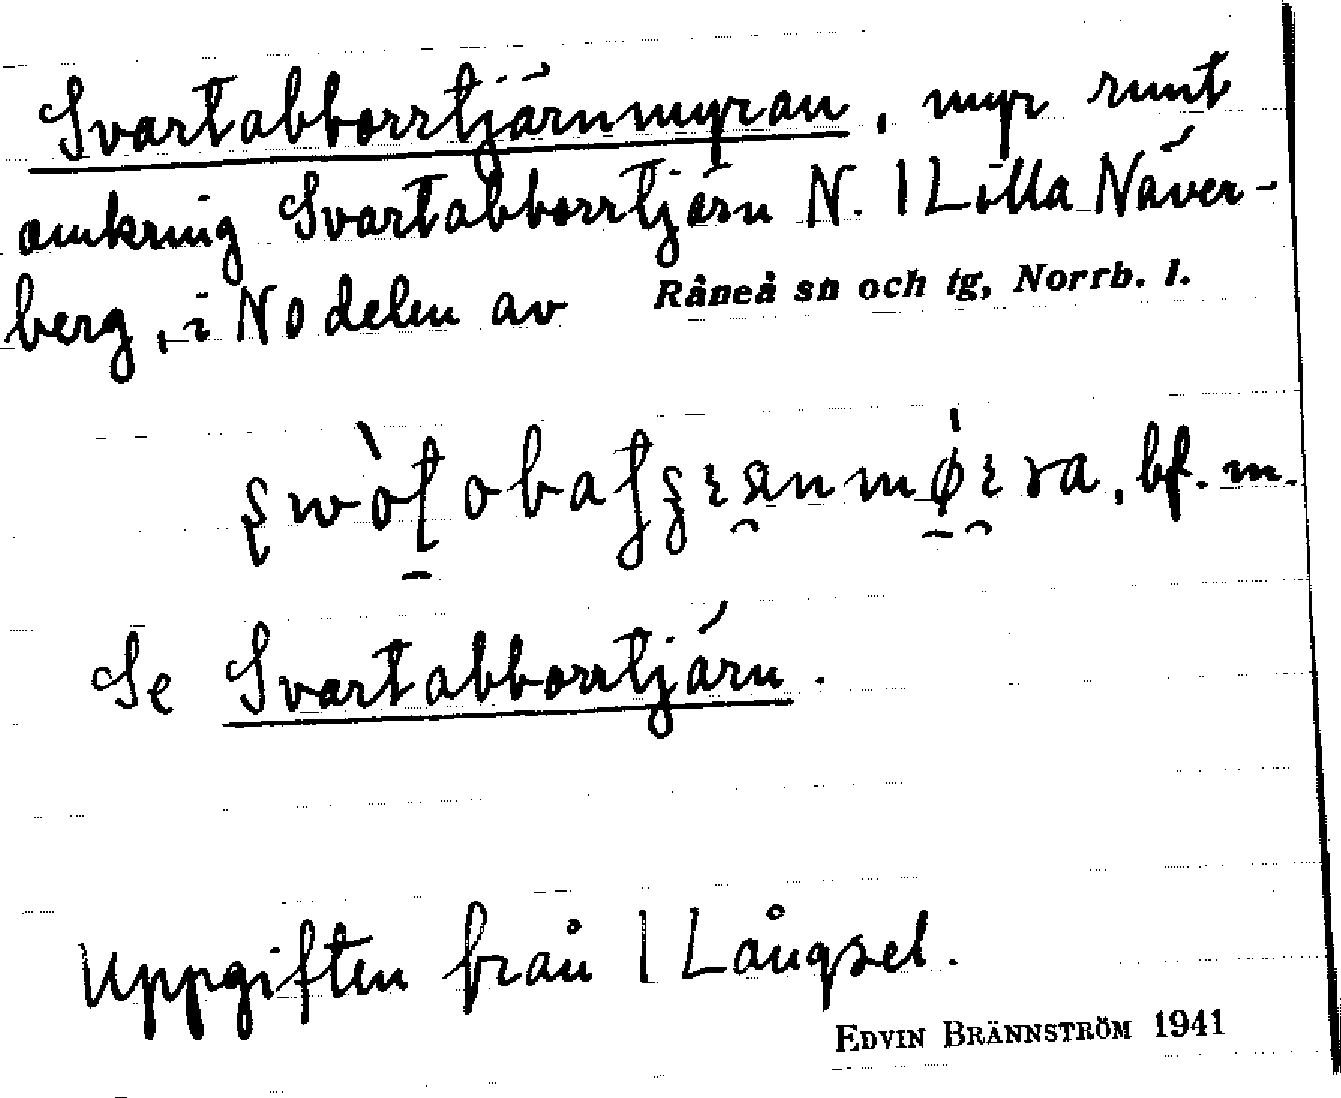 Svartabborrtjärnmyran, myr runt
omkring Svartabborrtjärn N. l Lilla Näver-
berg, i NO delen av Råneå sn och tg, Norrb. l.
bf. m.
Se Svartabborrtjärn.
Uppgiften från l Långsel.
EDVIN BRÄNNSTRÖM 1941